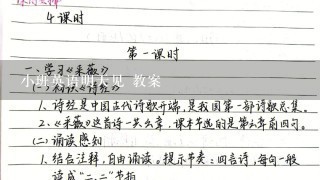 4课时
第一课时
一、学习《采薇》
小班英语明天见 教案
(一)初识《诗经》
1、诗经是中国古代诗歌开端,是我国第一部诗歌总集。
2、《采薇》这首诗一共六章,课本节选的是第六章前四句。
(二)诵读感知
1、结合注释,自由诵读。提示节奏:四言诗,每句一般
读成“二、二”节拍